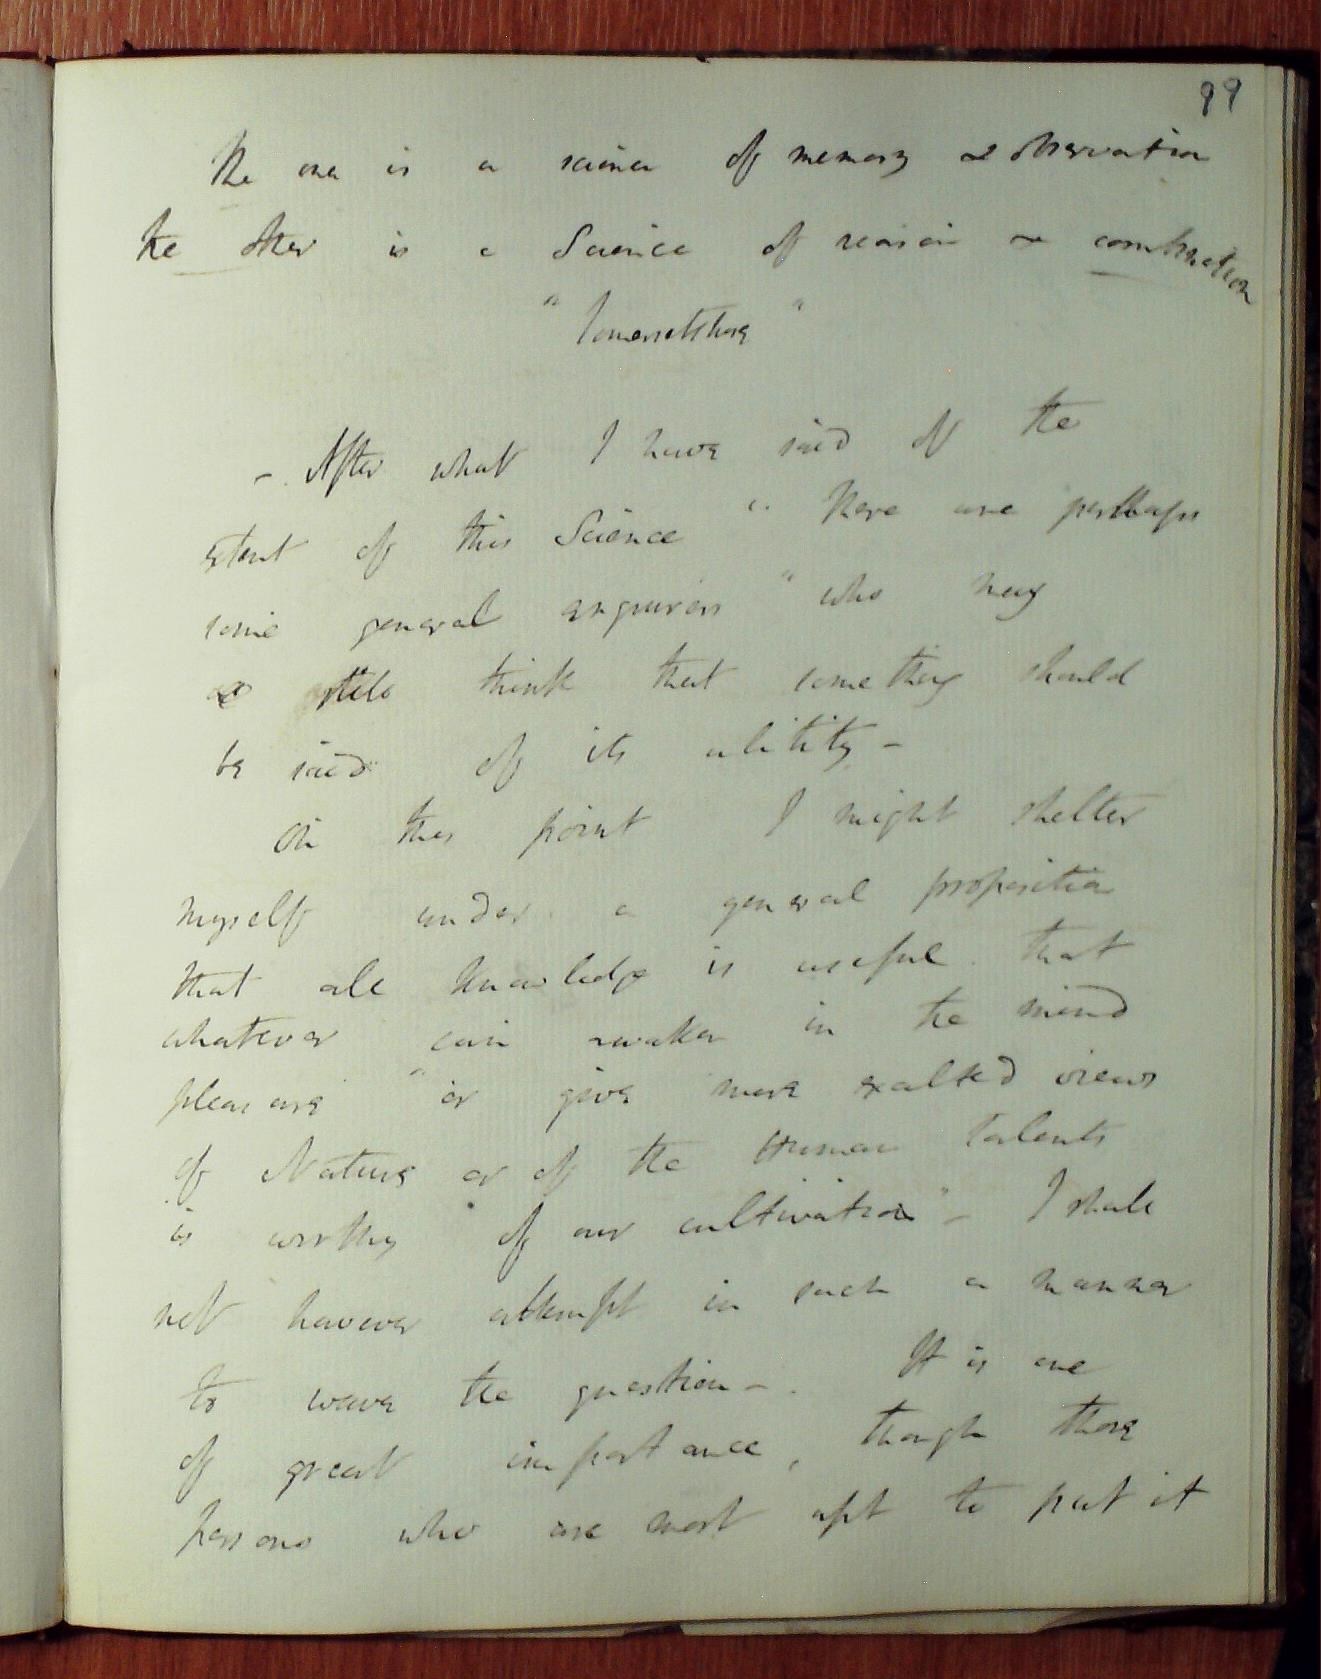 99
The one is a science of memory & observation
the other is a Science of reason & combination
" Somersetshire "
- After what I have said of the
extent of this Science " there are perhaps
some general enquirers " who may
still think that something should
be said of its utility -
On this point I might shelter
myself under a general proposition
that all knowledge is useful that
whatever can awaken in the mind
pleasure " or give more exalted views
of Nature or of the Human Talents
is worthy of our cultivation " - I shall
not however attempt in such a manner
to wave the question - . It is one
of great importance, though those
persons who are most apt to put it